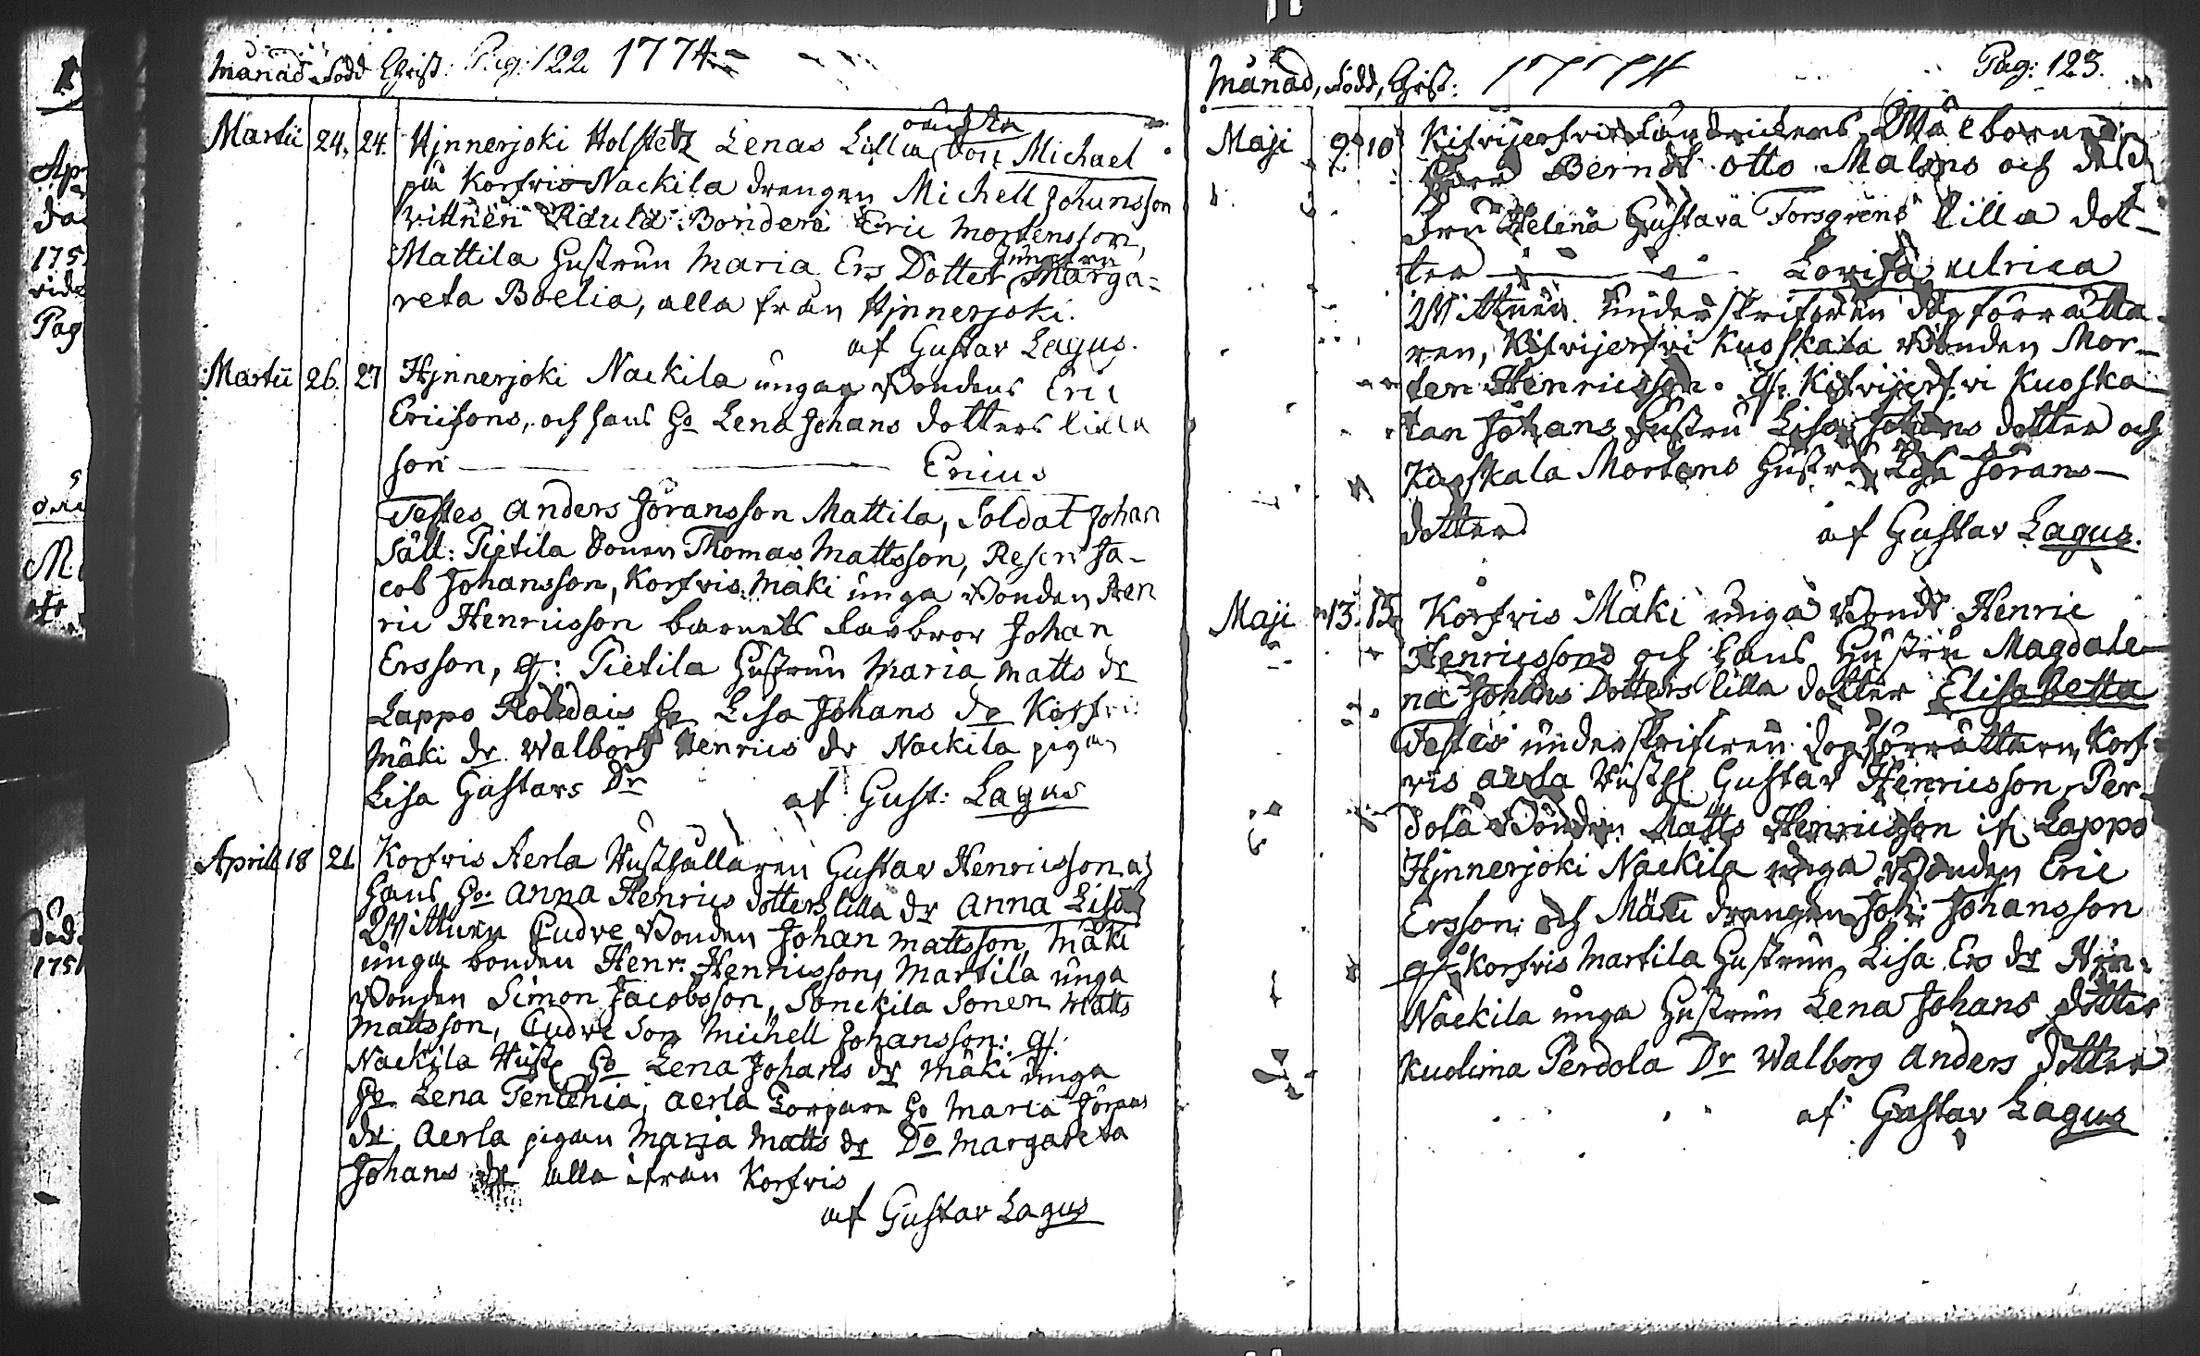 Månad, Född, Christ: Pag: 122 1774
Martii 24. 24. Hinnerjoki Holstetz Lenas Lilla oäckta Son Michael
på Korfvis Nackila drengen Michell Johansson
vittnen Raula Bonden Eric Mortensson,
Mattila Hustrun Maria Ers Dotter Jungfru Marga-
reta Boelia, alla från Hinnerjoki.
af Gustav Lagus.
Martii 26. 27 Hinnerjoki Nackila ungan Bondens Eric
Ericsons, och hans Ho Lena Johans dotters lilla
son Ericus
Testes Anders Jöransson Mattila, Soldat Johan
Säll: Pietila Sonen Thomas Mattsson, Reserv Ja-
cob Johansson, Korfvis Mäki unga Bonden Hen
ric Henricsson barnets farbror Johan
Ersson, qf: Pietila Hustrun Maria Matts dr
Lappo Ho Lisa Johans dr Korfvis
Mäki dr Walborg Henrics dr Nackila pigan
Lisa Gustavs Dr
af Gust: Lagus
Aprill 18 21 Korfvis Aerla Rusthållaren Gustav Henricsson och
hans Ho Anna Henrics dotters lilla dr Anna Lisa
Wittnen Eudre Bonden Johan Mattsson, Mäki
unga bonden Henr: Henricsson, Martila unga
Bonden Simon Jacobsson, Sonckila Sonen Matts
Mattsson, Eudre Son Michell Johansson: qf:
Nackila Rusth Ho Lena Johans dr Mäki unga
Ho Lena Aerla Torpare Ho Maria Jörans
dr, Aerla pigan Maria Matts dr Do Margareta
Johans dr alla ifrån Korfvis
af Gustav Lagus
Månad, Född, Christ: 1774 Pag: 123.
Maji 9 10 Wälborne
Herr Berndt Otto Malms och dess
Fru Helena Gustava Forsgrens lilla dot-
ter Lovisa Ulrica
Wittnen underskrifven dopförrätta-
ren, Kuoskala Bonden Mor-
ten Henricsson. qf: Kuoska-
lan Johans Hustru Lisa Johans dotter och
Kuoskala Mortens Hustru Lisa Jörans-
dotter
af Gustav Lagus.
Maji 13. 15. Korfvis Mäki unga Bond: Henric
Henricssons och hans Hustru Magdale-
na Johans Dotters lilla dotter Elisabetta
Testes underskrifven dopförrättaren, Korf-
vis Aerla Rusth Gustav Henricsson, Per-
dola Bonden Matts Henricsson if: Lappo
Hinnerjoki Nackila unga Bonden Eric
Ersson och Mäki drengen Joh: Johansson
qf: Korfvis Martila Hustrun Lisa Ers dr Hin:
Nackila unga Hustrun Lena Johans Dotter
Kuolima Perdola Dr Walborg Anders Dotter
af Gustav Lagus